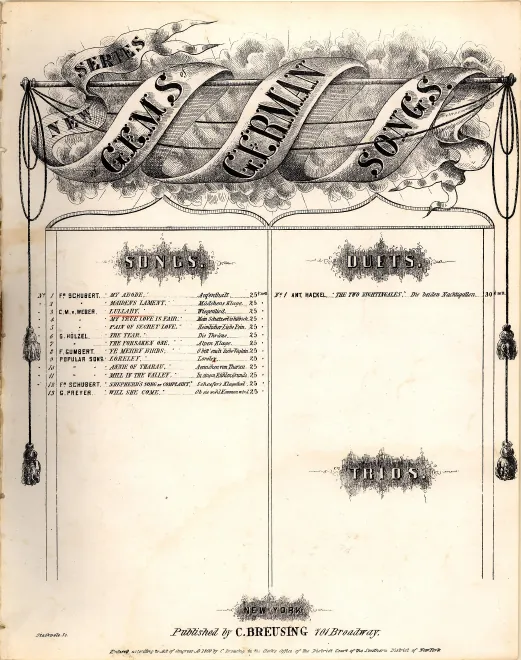 NEW SERIES of
GEMS GERMAN SONGS.
SONGS.
No 1 Fr. SCHUBERT. "MY ABODE." Aufenthalt. 25 Cents
" 2 " " "MAIDEN'S LAMENT." Mädchens Klage. 25 "
" 3 C.M.v.WEBER. "LULLABY." Wiegenlied. 25 "
" 4 " " "MY TRUE LOVE IS FAIR." Mein Schatzerl is hübsch. 25 "
" 5 " " "PAIN OF SECRET LOVE." Heimlicher Liebe Pein. 25 "
" 6 G. HÖLZEL. "THE TEAR." Die Thräne. 25 "
" 7 " " "THE FORSAKEN ONE." Klage. 25 "
" 8 F. GUMBERT. "YE MERRY BIRDS." 25 "
" 9 POPULAR SONG. "LORELEY." Loreley. 25 "
" 10 " " "ANNIE OF THARAU." Aennchen von Tharau. 25 "
" 11 " " "MILL IN THE VALLEY." In einem kühlen Grunde. 25 "
" 12 Fr. SCHUBERT. "SHEPHERD'S SONG or COMPLAINT." Schaefer's Klagelied. 25 "
" 13 G. PREYER. "WILL SHE COME." Ob sie wohl kommen wird. 25 "
DUETS.
No 1 ANT. HACKEL. "THE TWO NIGHTINGALES." Die beiden Nachtigallen. 30 Cents
TRIOS.
NEW YORK
Published by C. BREUSING 701 Broadway.
Entered according to Act of Congress by C. Breusing in the Clerks Office of the District Court of the Southern District of New York